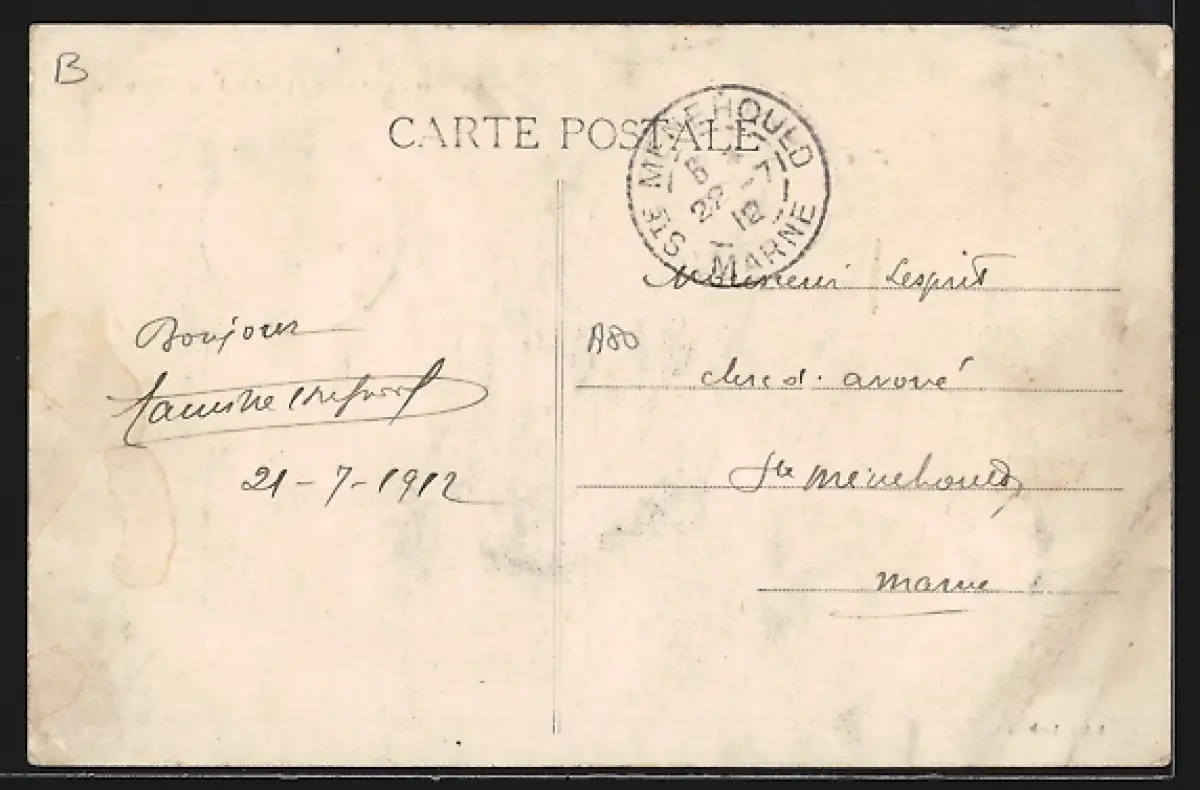 B
CARTE POSTALE
STE MENEHOULD
MARNE
22 - 7
12
Monsieur Lesprit
Bonjour
A80
clerc d. avoué
21 - 7 - 1912
Ste Menehould
Marne